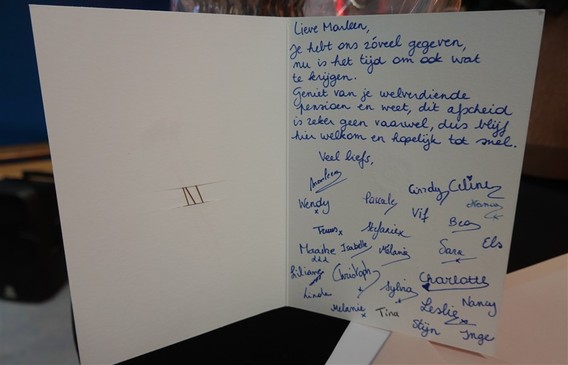 Lieve Marleen,
Je hebt ons zóveel gegeven,
nu is het tijd om ook wat
te krijgen.
Geniet van je welverdiende
pensioen en weet, dit afscheid
is zeker geen vaarwel, dus blijf
hier welkom en hopelijk tot snel.
Veel liefs,
Cindy Celine
Wendy Pascale
Vif Bea
Truus Stefanie
Maaike Isabelle Mélanie Sara Els
Liliane Christoph Sylvia Charlotte
Linda Nancy
Melanie Tina Leslie
Stijn Inge